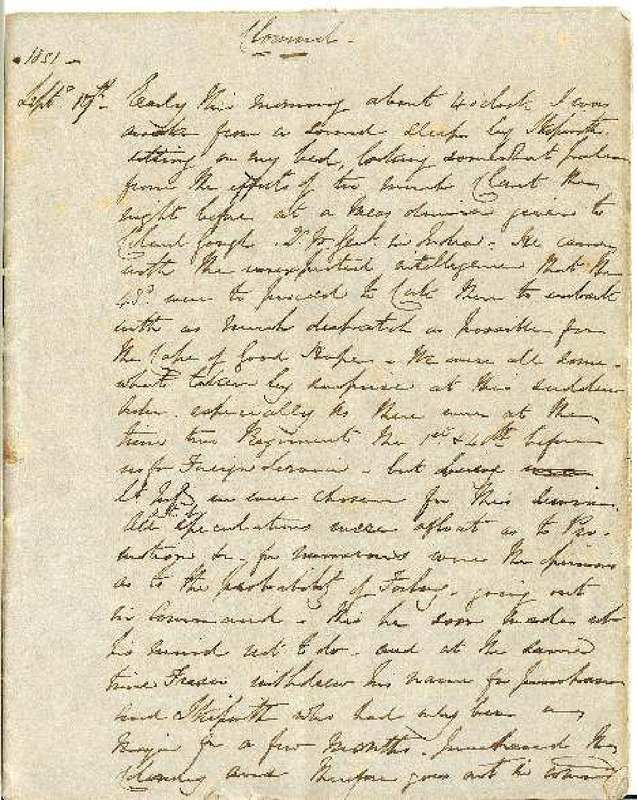 Clonmel -
1851 -
Septr 17th - Early this morning about 4 oclock I was
awoke from a sound sleep by Skipwith
sitting on my bed, looking somewhat
from the effects of too much Claret the
night before at a Mess dinner given to
Colonel Gough. in India. He came
with the unexpected intelligence that the
43d were to proceed to Cork there to embark
with as much despatch as possible for
the Cape of Good Hope - We were all some-
what taken by surprise at this sudden
order. especially as there were at the
time two Regiments the 1st & 40th before
us for Foreign Service - but being
Lt Infy we were chosen for this service.
All sorts of speculations were afloat as to Pro-
motion &c. for numerous were the opinions
as to the probability of going out
in Command - this he soon made up
his mind not to do - and at the same
time Fraser withdrew his name for purchase
and Skipwith who had only been a
Major for a few months. purchased the
Colonelcy and therefore goes out in command